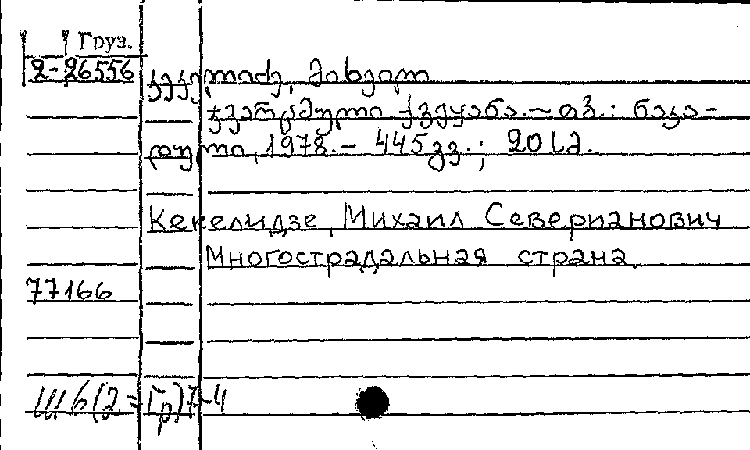 Груз.
2-26556
კეკელიძე, მიხეილ
ჯვარცმული ქვეყანა. - თბ.: ნაკა-
დული, 1978. - 445გვ.; 20სმ.
Кекелидзе, Михаил Северианович
Многострадальная страна.
77166
Ш6(2=Гр)7-4